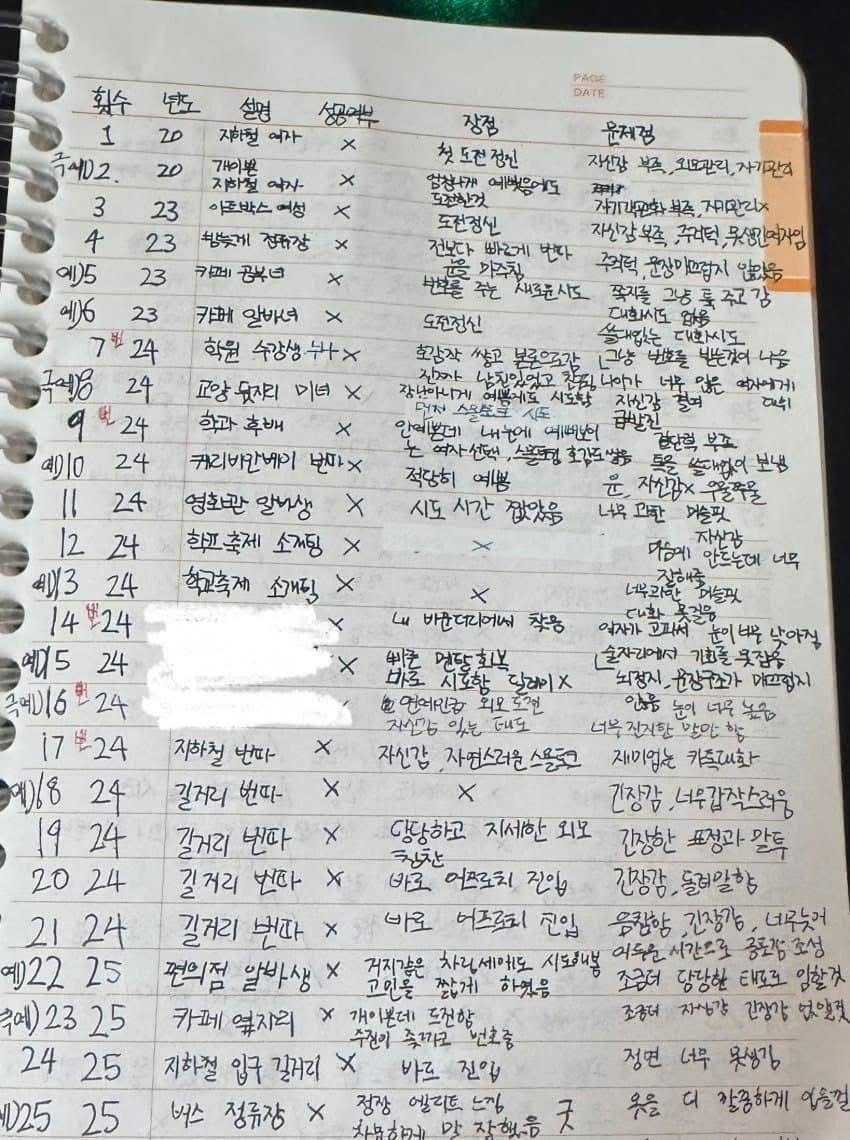 PAGE
DATE
횟수 년도 설명 성공여부 장점 문제점
1 20 지하철 여자 × 첫 도전정신 자신감 부족, 외모관리, 자기관리
극예)2. 20 개이쁜 지하철 여자 × 엄청나게 예뻤음에도 도전한것
3 23 아트박스 여성 × 도전정신 부족, 자기관리×
4 23 정류장 × 전보다 빠르게 번따 자신감 부족, 주의력, 못생긴여자임
예)5 23 카페 공부녀 × 운을 마주침 주의력, 문장 매끄럽지 않았음
예)6 23 카페 알바녀 × 번호를 주는 새로운시도 쪽지를 그냥 툭 주고 감
도전정신 대화시도 없음
7 번 24 학원 수강생 누나 × 호감작 쌓고 본론으로감 쓸데없는 대화시도
그냥 번호를 받는것이 나음
극예)8 24 교양 뒷자리 미녀 × 장난아니게 예쁨에도 시도함 나이가 너무 많은 여자에게
자신감 결여
9 번 24 학과 후배 × 먼저 스몰토크 시도 급발진
안예쁜데 내 눈에 예뻐보이는 여자선택, 스몰토킹 호감도쌓음 결단력 부족
예)10 24 캐리비안베이 번따 × 적당히 예쁨 톡을 쓸데없이 보냄
11 24 영화관 알바생 × 시도 시간 짧았음 운, 자신감× 우물쭈물
12 24 학교축제 소개팅 × × 너무 과한 머슬핏
자신감
예)13 24 학교축제 소개팅 × × 맘에 안드는데 너무 잘해줌
너무과한 머슬핏
14 번 24 × 내 바운더리에서 작용 대화 못걸음
여자가 고파서 눈이 너무 낮아짐
예)15 24 × 빠른 멘탈회복 술자리에서 기회를 못잡음
바로 시도함 딜레이× 뇌정지, 문장구조가 매끄럽지 않음
극예)16 번 24 연예인급 외모 도전 눈이 너무 높음
자신감 있는 태도 너무 진지한 말만 함
17 번 24 지하철 번따 × 자신감, 자연스러운 스몰토크 재미없는 카톡대화
예)18 24 길거리 번따 × × 긴장감, 너무갑작스러움
19 24 길거리 번따 × 당당하고 자세한 외모 칭찬 긴장한 표정과 말투
20 24 길거리 번따 × 바로 어프로치 진입 긴장감, 돌려말함
21 24 길거리 번따 × 바로 어프로치 진입 음침함, 긴장감, 너무늦거
어두운 시간으로 공포감 조성
예)22 25 편의점 알바생 × 거지같은 차림새에도 시도해봄 조금더 당당한 태도로 임할것
고민을 짧게 하였음
극예)23 25 카페 옆자리 × 개이쁜데 도전함 조금더 자신감 긴장감 없앨것
주전이 쪽까고 번호줌
24 25 지하철 입구 길거리 × 바로 진입 정면 너무 못생김
예)25 25 버스 정류장 × 정장 엘리트 느낌 굿 옷을 더 깔끔하게 입을걸
차분하게 말 잘했음